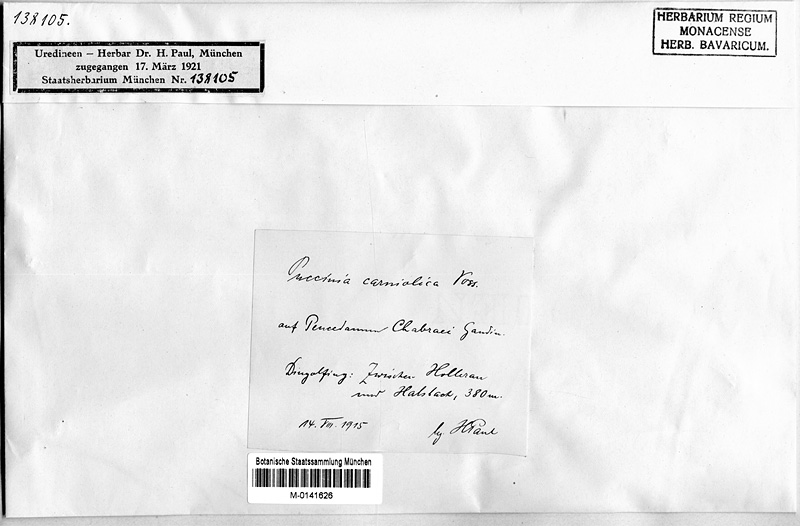 138105.
Uredineen – Herbar Dr. H. Paul, München
zugegangen 17. März 1921
Staatsherbarium München Nr. 138105
HERBARIUM REGIUM
MONACENSE
HERB. BAVARICUM.
Puccinia carniolica Voss.
auf Peucedanum Chabraei Gaudin.
Dingolfing: Zwischen Hollerau
und Halstach, 380 m.
14. VII. 1915
lg. HPaul
Botanische Staatssammlung München
M-0141626